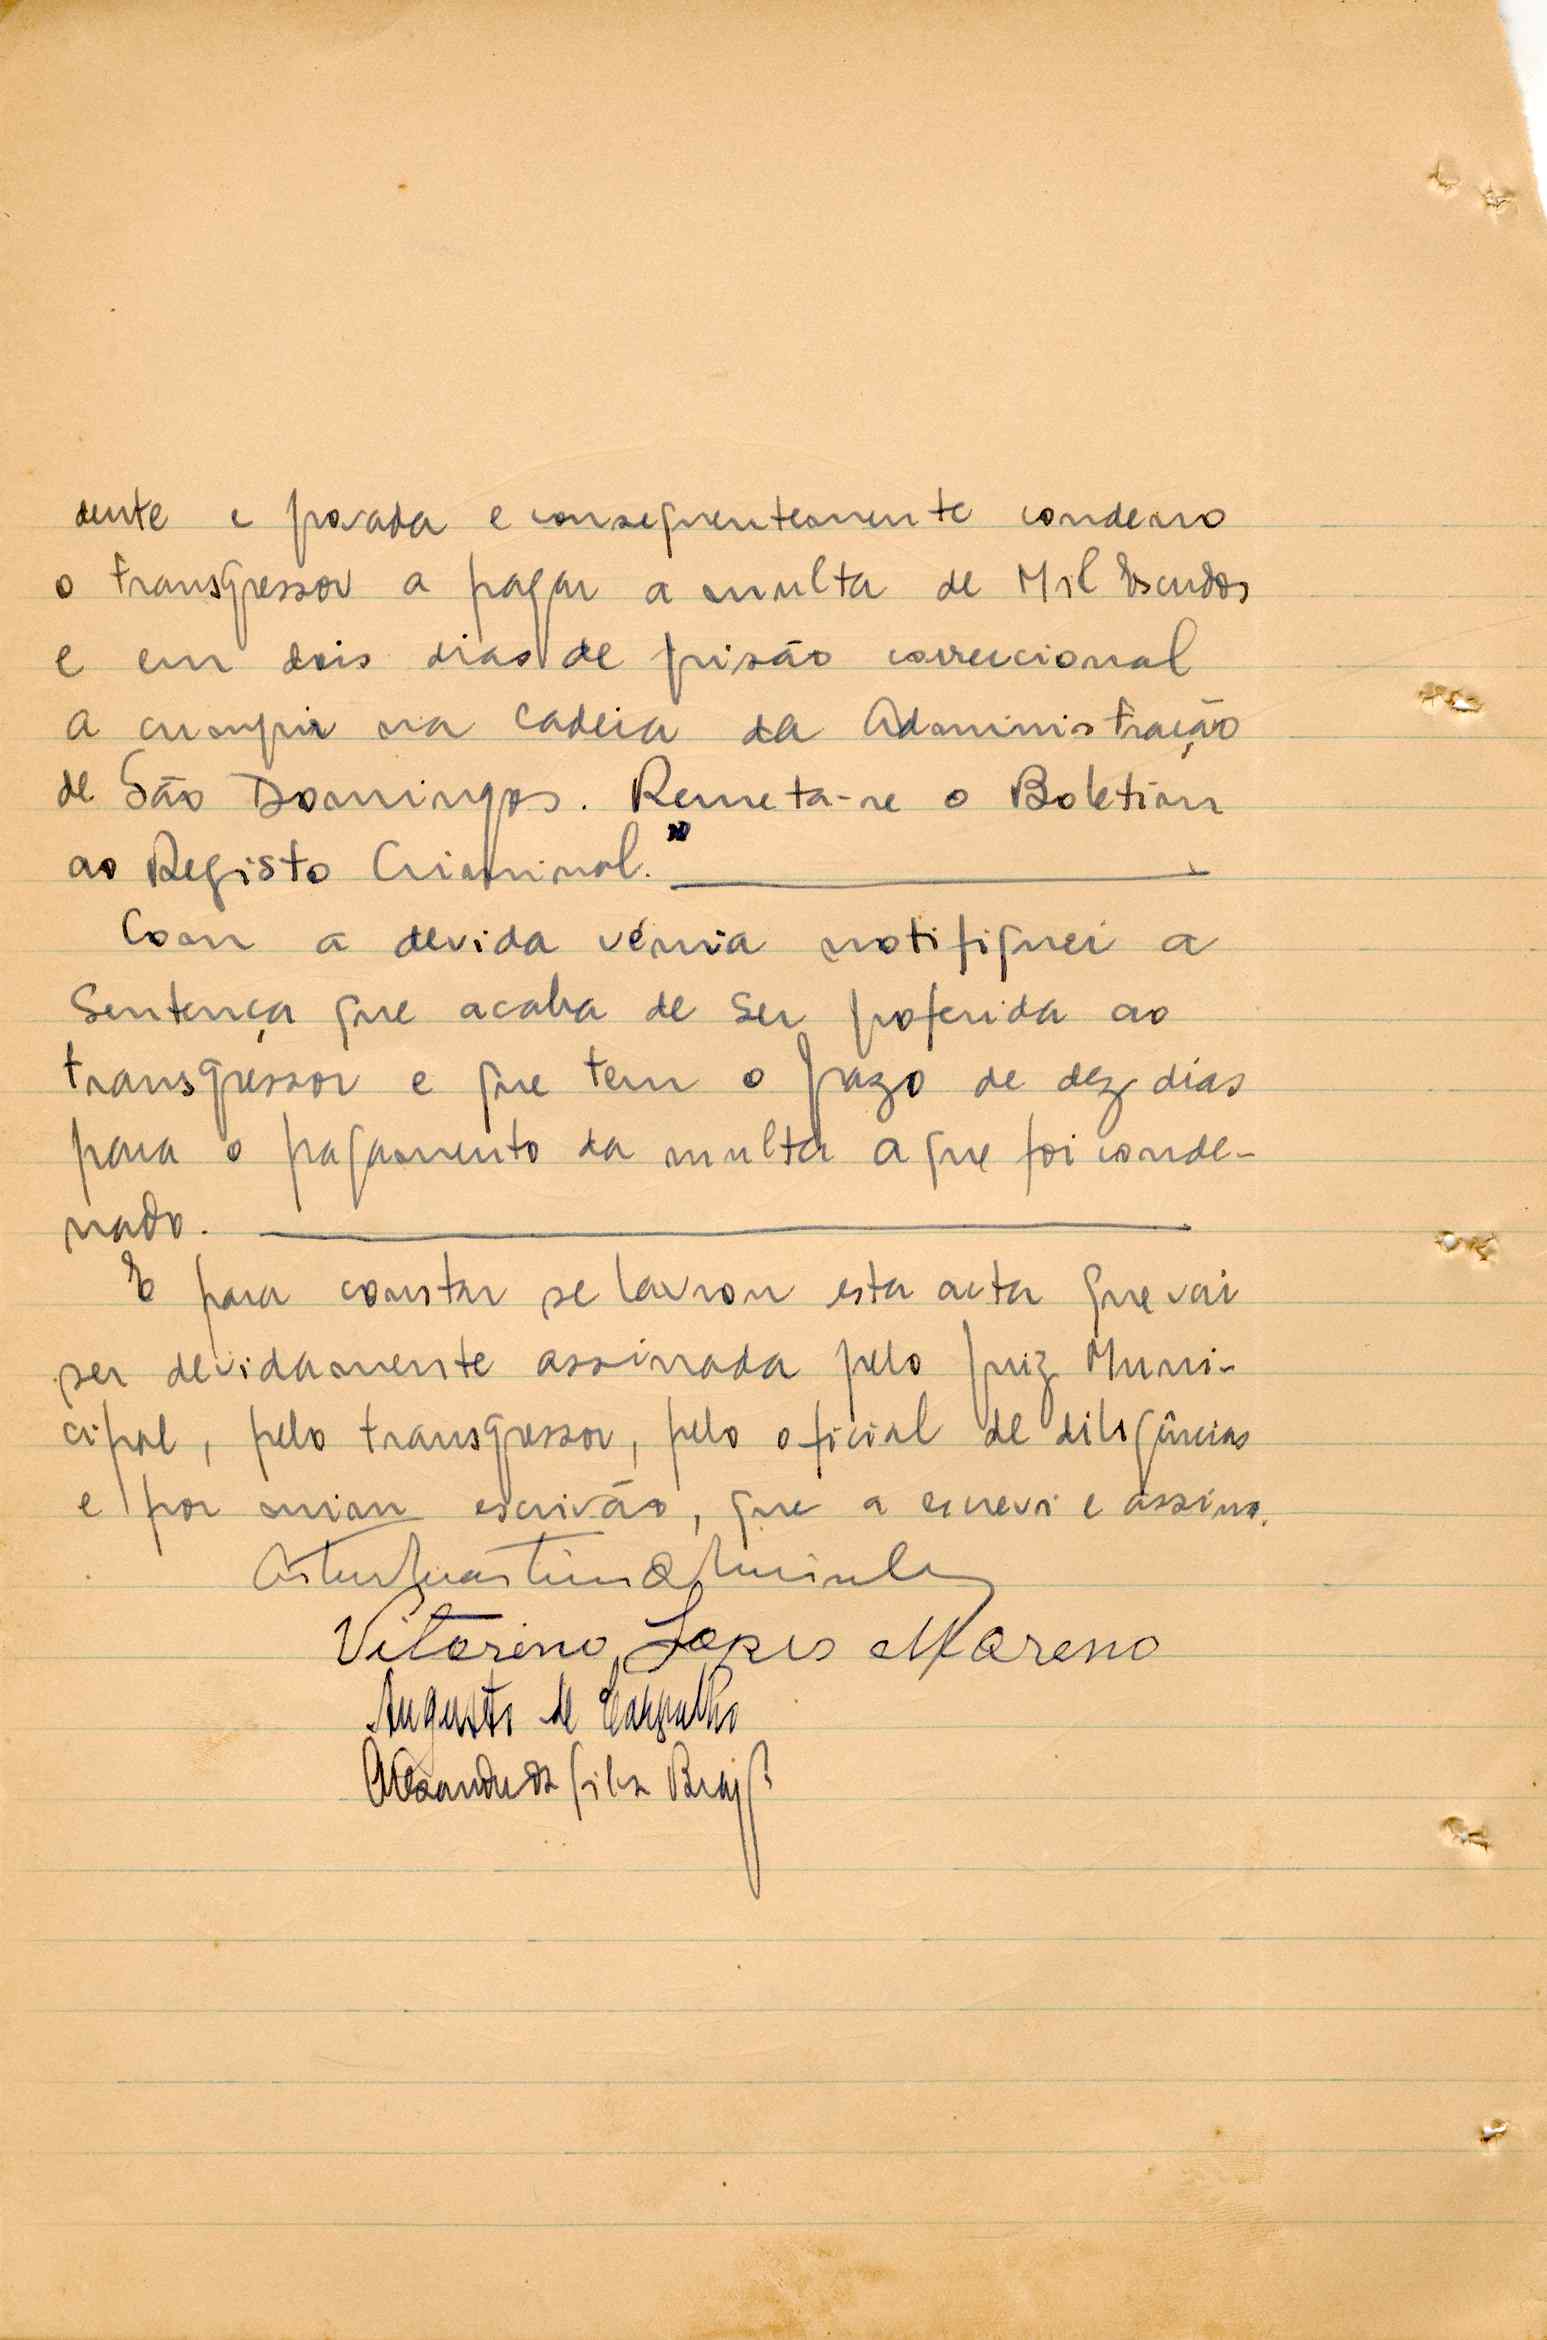 dente e provada e consequentemente condeno
o transgressor a pagar a multa de Mil Escudos
e em dois dias de prisão correccional
a cumprir na cadeia da Administração
de São Domingos. Remeta-se o Boletim
ao Registo Criminal."
Com a devida vénia notifiquei a
Sentença que acaba de ser proferida ao
transgressor e que tem o prazo de dez dias
para o pagamento da multa a que foi conde-
nado.
E para constar se lavrou esta acta que vai
ser devidamente assinada pelo Juiz Muni-
cipal, pelo transgressor, pelo oficial de diligências
e por mim escrivão, que a escrevi e assino.
Artur Martins
Vitorino Lopes Moreno
Augusto de Carvalho
Alexandre da Silva